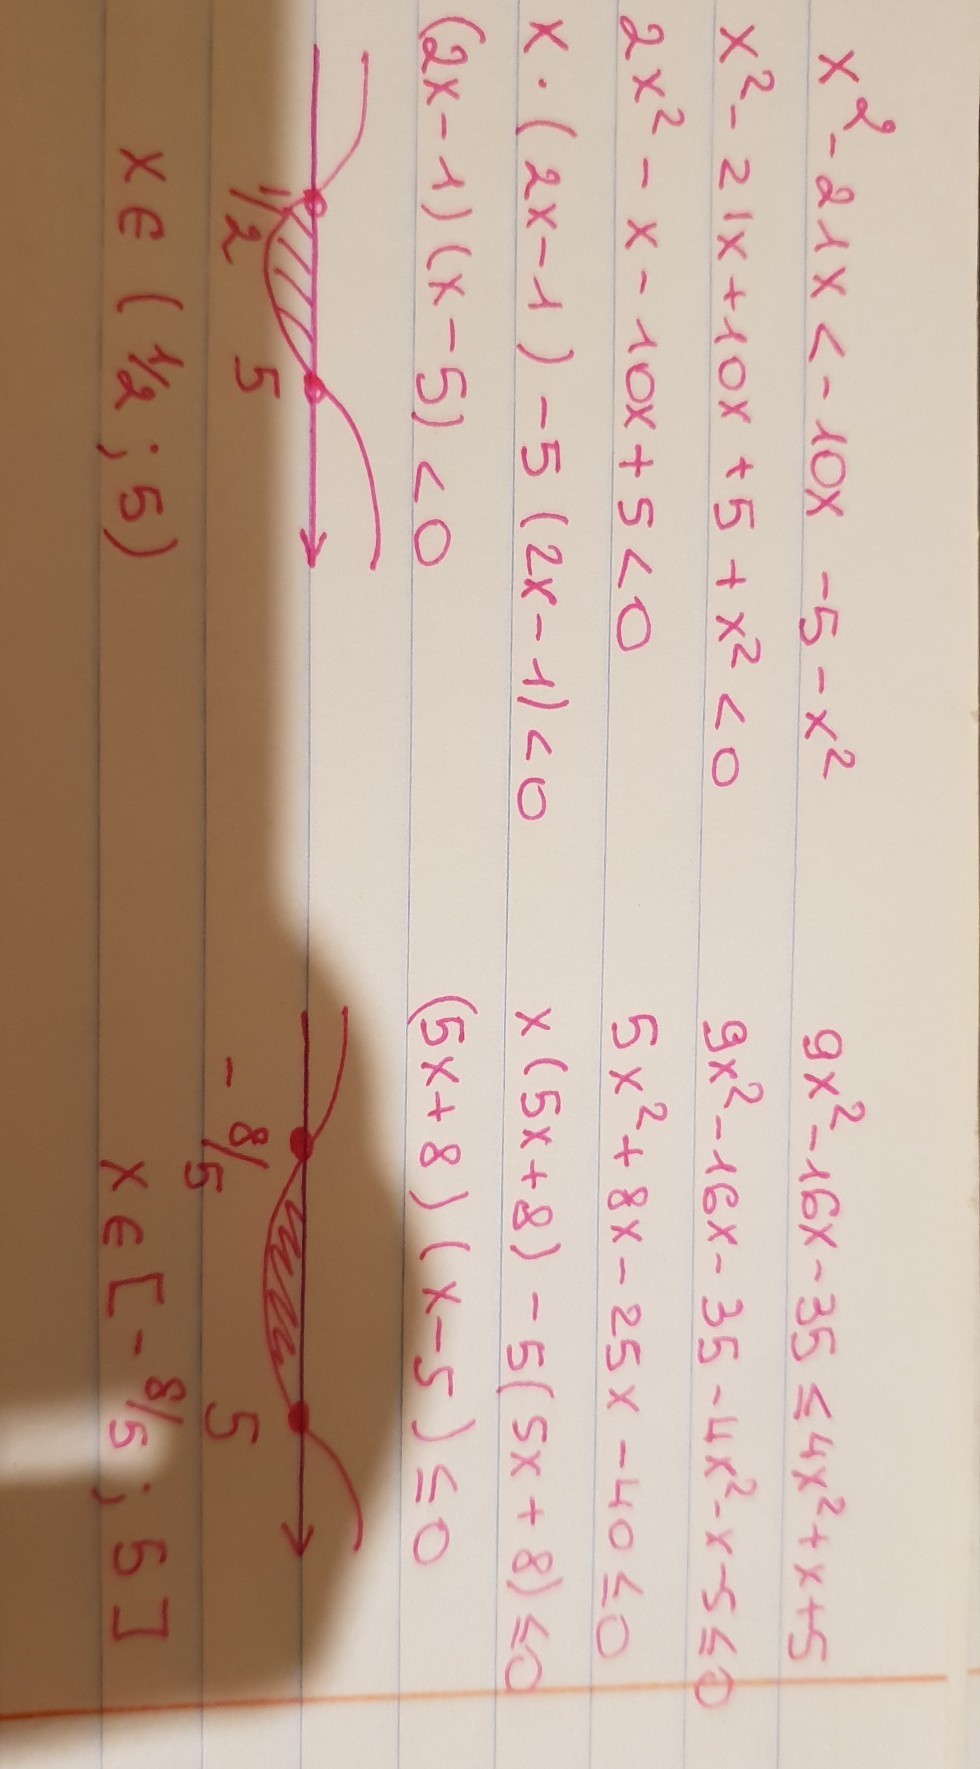 x² - 21x < -10x -5 - x²
x² - 21x + 10x + 5 + x² < 0
2x² - x - 10x + 5 < 0
x · (2x - 1) - 5 (2x - 1) < 0
(2x - 1) (x - 5) < 0
1/2 5
x ∈ (1/2 ; 5)
9x² - 16x - 35 ≤ 4x² + x + 5
9x² - 16x - 35 - 4x² - x - 5 ≤ 0
5x² + 8x - 25x - 40 ≤ 0
x (5x + 8) - 5 (5x + 8) ≤ 0
(5x + 8) (x - 5) ≤ 0
-8/5 5
x ∈ [-8/5 ; 5]